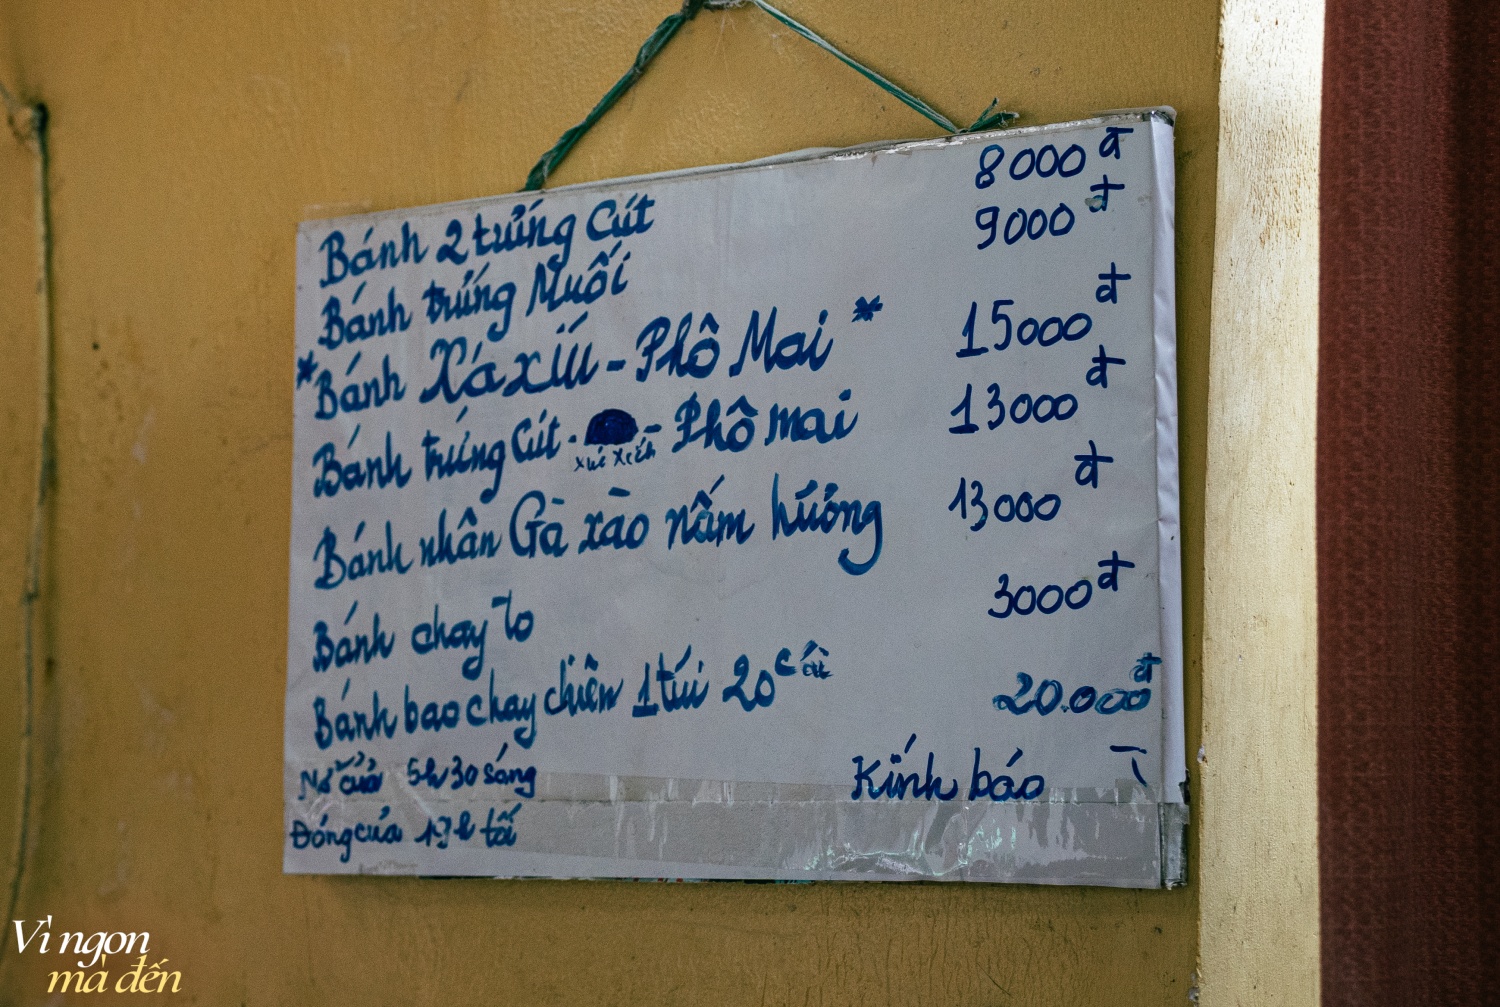 Bánh 2 trứng Cút 8000đ
Bánh trứng Muối 9000đ
*Bánh Xá xíu - Phô Mai* 15000đ
Bánh trứng Cút - - Phô mai 13000đ
Bánh nhân Gà xào nấm hương 13000đ
Bánh chay To 3000đ
Bánh bao chay chiên 1 túi 20 cái 20.000đ
Mở cửa 5h30 sáng
Kính báo
Đóng cửa tối
Vì ngon
mà đến